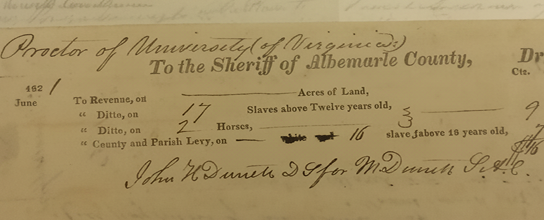 Proctor of University (of Virginia)
To the Sheriff of Albemarle County, Dr
Cts.
1821
June To Revenue, on Acres of Land,
“ Ditto, on 17 Slaves above Twelve years old, 9
“ Ditto, on 2 Horses,
“ County and Parish Levy, on 16 slaves above 16 years old, 7
John H Durrett D S for M Durrett S. A. C. $16